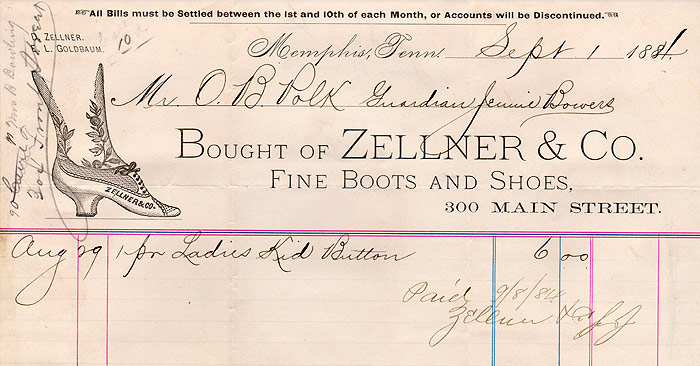 All Bills must be Settled between the 1st and 10th of each Month, or Accounts will be Discontinued.
P. ZELLNER.
L. GOLDBAUM.
10/-
Memphis, Tenn. Sept 1 1884
Mr O. B Polk Guardian Jennie Bowers
BOUGHT OF ZELLNER & CO.
FINE BOOTS AND SHOES,
300 MAIN STREET.
ZELLNER & CO.
Aug 29 1 pr Ladies Kid Button 6 00
Paid 9/8/84
Zellner & Co